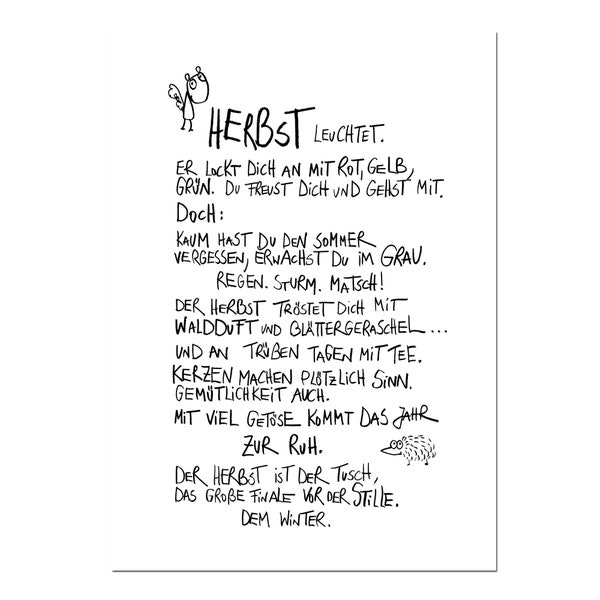 HERBST LEUCHTET.
ER LOCKT DICH AN MIT ROT, GELB,
GRÜN. DU FREUST DICH UND GEHST MIT.
DOCH:
KAUM HAST DU DEN SOMMER
VERGESSEN, ERWACHST DU IM GRAU.
REGEN. STURM. MATSCH!
DER HERBST TRÖSTET DICH MIT
WALDDUFT UND BLÄTTERGERASCHEL...
UND AN TRÜBEN TAGEN MIT TEE.
KERZEN MACHEN PLÖTZLICH SINN.
GEMÜTLICHKEIT AUCH.
MIT VIEL GETÖSE KOMMT DAS JAHR
ZUR RUH.
DER HERBST IST DER TUSCH,
DAS GROßE FINALE VOR DER STILLE.
DEM WINTER.